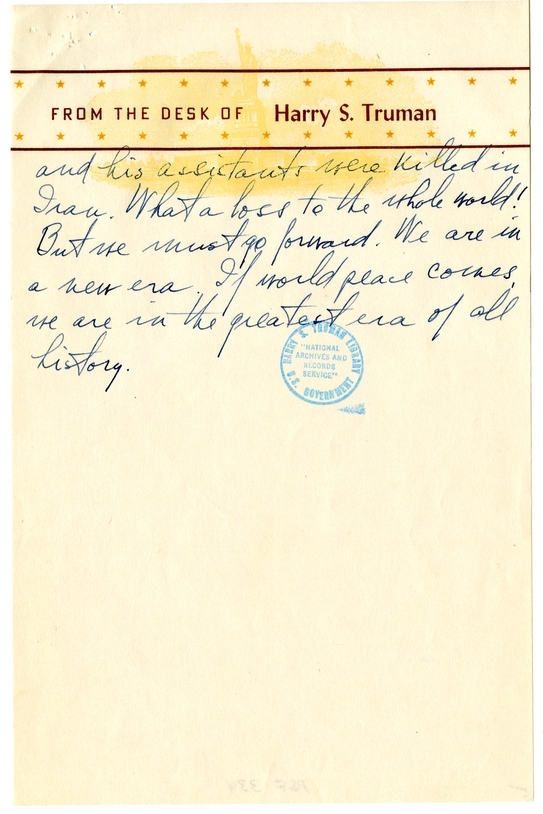 FROM THE DESK OF Harry S. Truman
and his assistants were killed in
Iran. What a loss to the whole world!
But we must go forward. We are in
a new era. If world peace comes,
we are in the greatest era of all
history.
HARRY S. TRUMAN LIBRARY
"NATIONAL
ARCHIVES AND
RECORDS
SERVICE"
U.S. GOVERNMENT